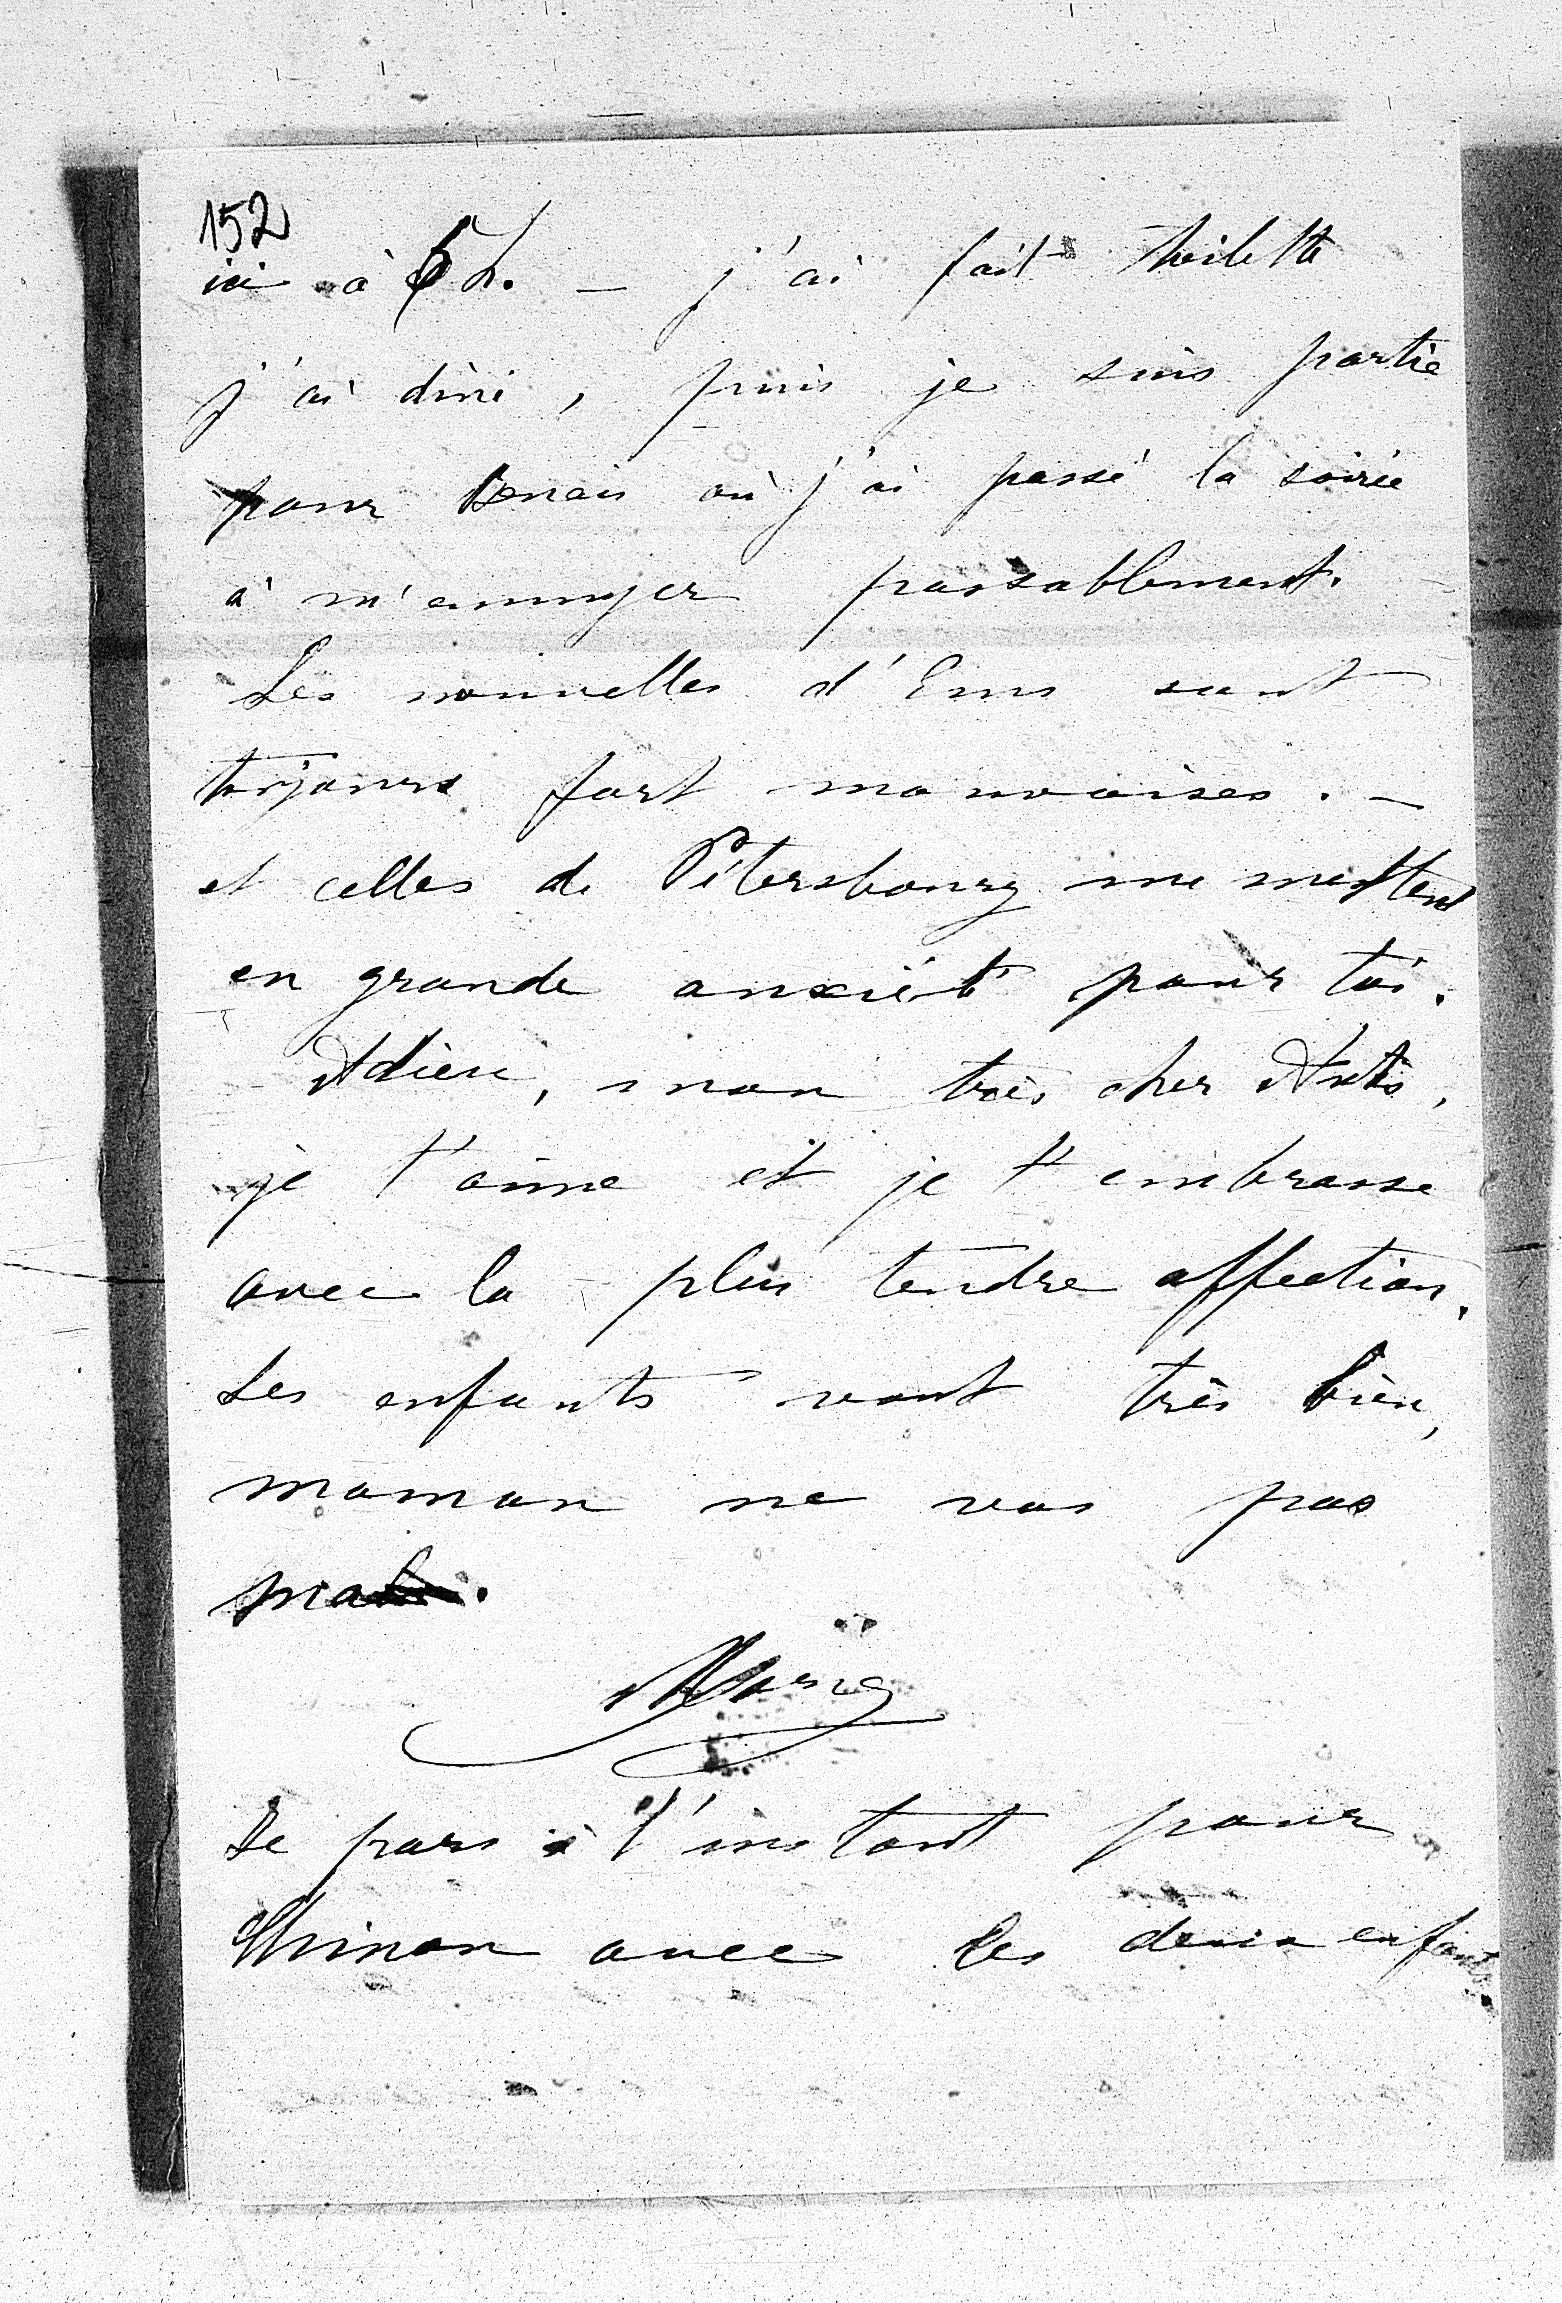 152
ici à 6 h. — j'ai fait toilette
j'ai diné, puis je suis partie
pour Benais où j'ai passé la soirée
à m'ennuyer passablement.
Les nouvelles d'Ems sont
toujours fort mauvaises. —
et celles de Pétersbourg me mettent
en grande anxiété pour toi.
Adieu, mon très cher
je t'aime et je t'embrasse
avec la plus tendre affection.
Les enfants vont très bien,
maman ne vas pas
mal.
Je pars à l'instant pour
Chinon avec les deux enfants.